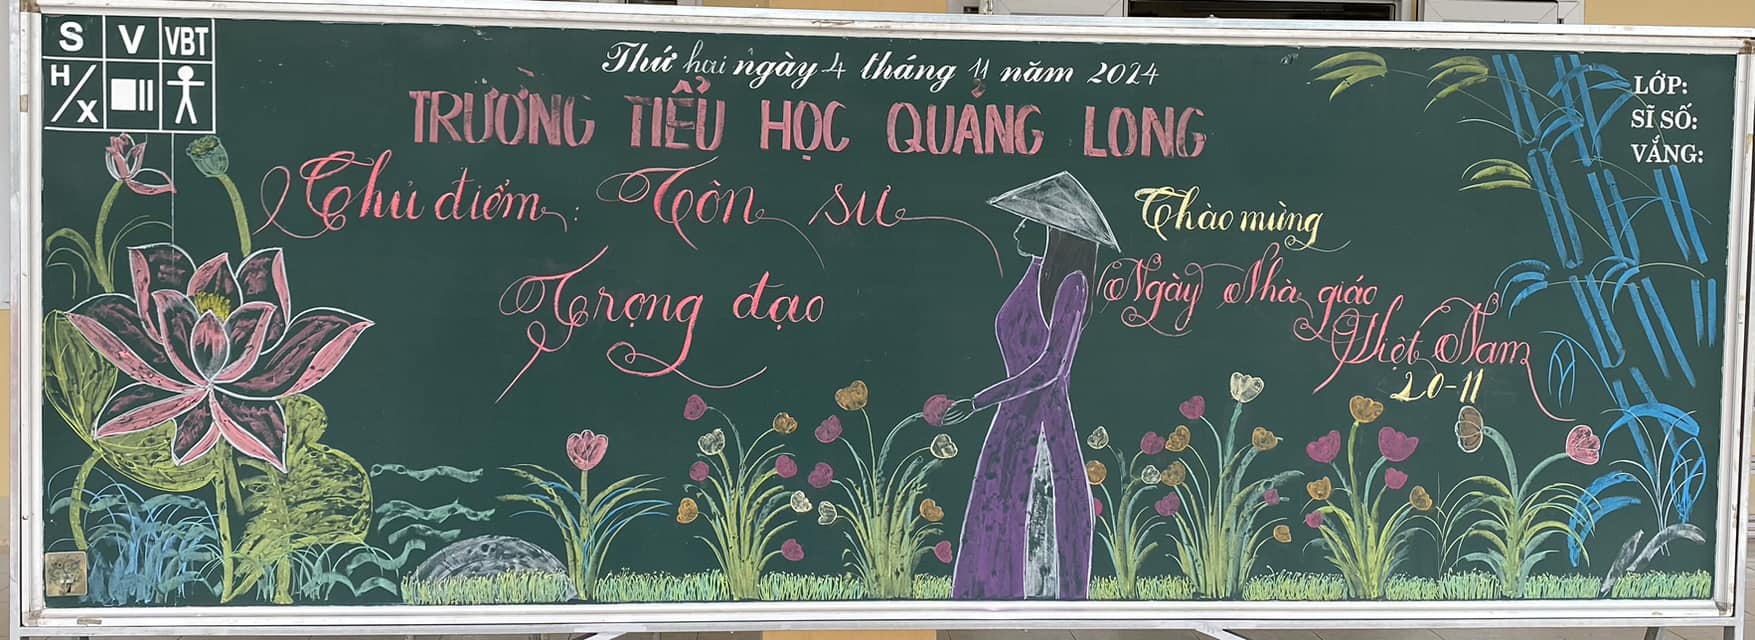 S V VBT
H/X
Thứ hai ngày 4 tháng 11 năm 2024
TRƯỜNG TIỂU HỌC QUẢNG LONG
Chủ điểm: Tôn sư
Trọng đạo
Chào mừng
Ngày Nhà giáo
Việt Nam
20-11
LỚP:
SĨ SỐ:
VẮNG: